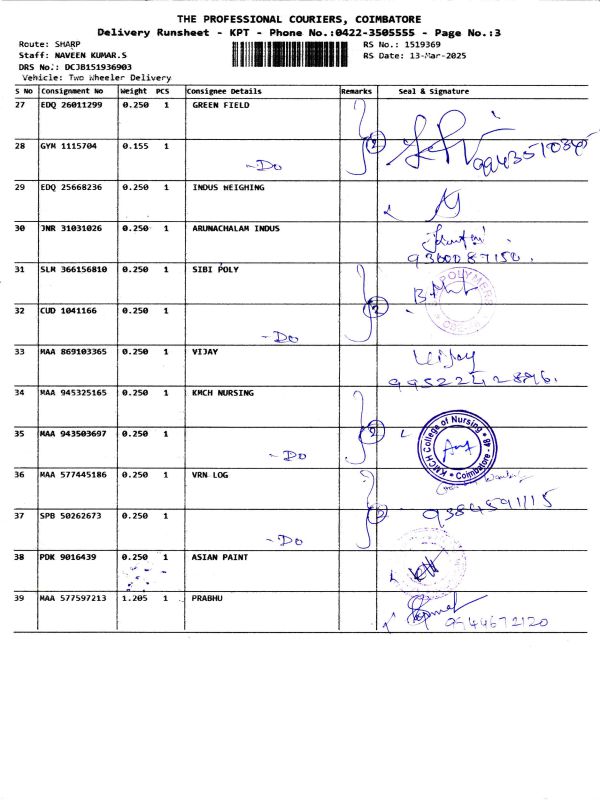 THE PROFESSIONAL COURIERS, COIMBATORE
Delivery Runsheet - KPT - Phone No.:0422-3505555 - Page No.:3
Route: SHARP
RS No.: 1519369
Staff: NAVEEN KUMAR.S
RS Date: 13-Mar-2025
DRS No.: DCJB151936903
Vehicle: Two Wheeler Delivery
S No Consignment No Weight PCS Consignee Details Remarks Seal & Signature
27 EDQ 26011299 0.250 1 GREEN FIELD
28 GYM 1115704 0.155 1 -Do 2
29 EDQ 25668236 0.250 1 INDUS WEIGHING
30 JNR 31031026 0.250 1 ARUNACHALAM INDUS
9360087150.
31 SLM 366156810 0.250 1 SIBI POLY
POLYMERS
32 CUD 1041166 0.250 1 -Do 2
33 MAA 869103365 0.250 1 VIJAY Vijay
34 MAA 945325165 0.250 1 KMCH NURSING
35 MAA 943503697 0.250 1 -Do 2
KMCH College of Nursing * Coimbatore - 48 *
36 MAA 577445186 0.250 1 VRN LOG
37 SPB 50262673 0.250 1 -Do 2
9384591115
38 PDK 9016439 0.250 1 ASIAN PAINT
39 MAA 577597213 1.205 1 PRABHU
9944672120